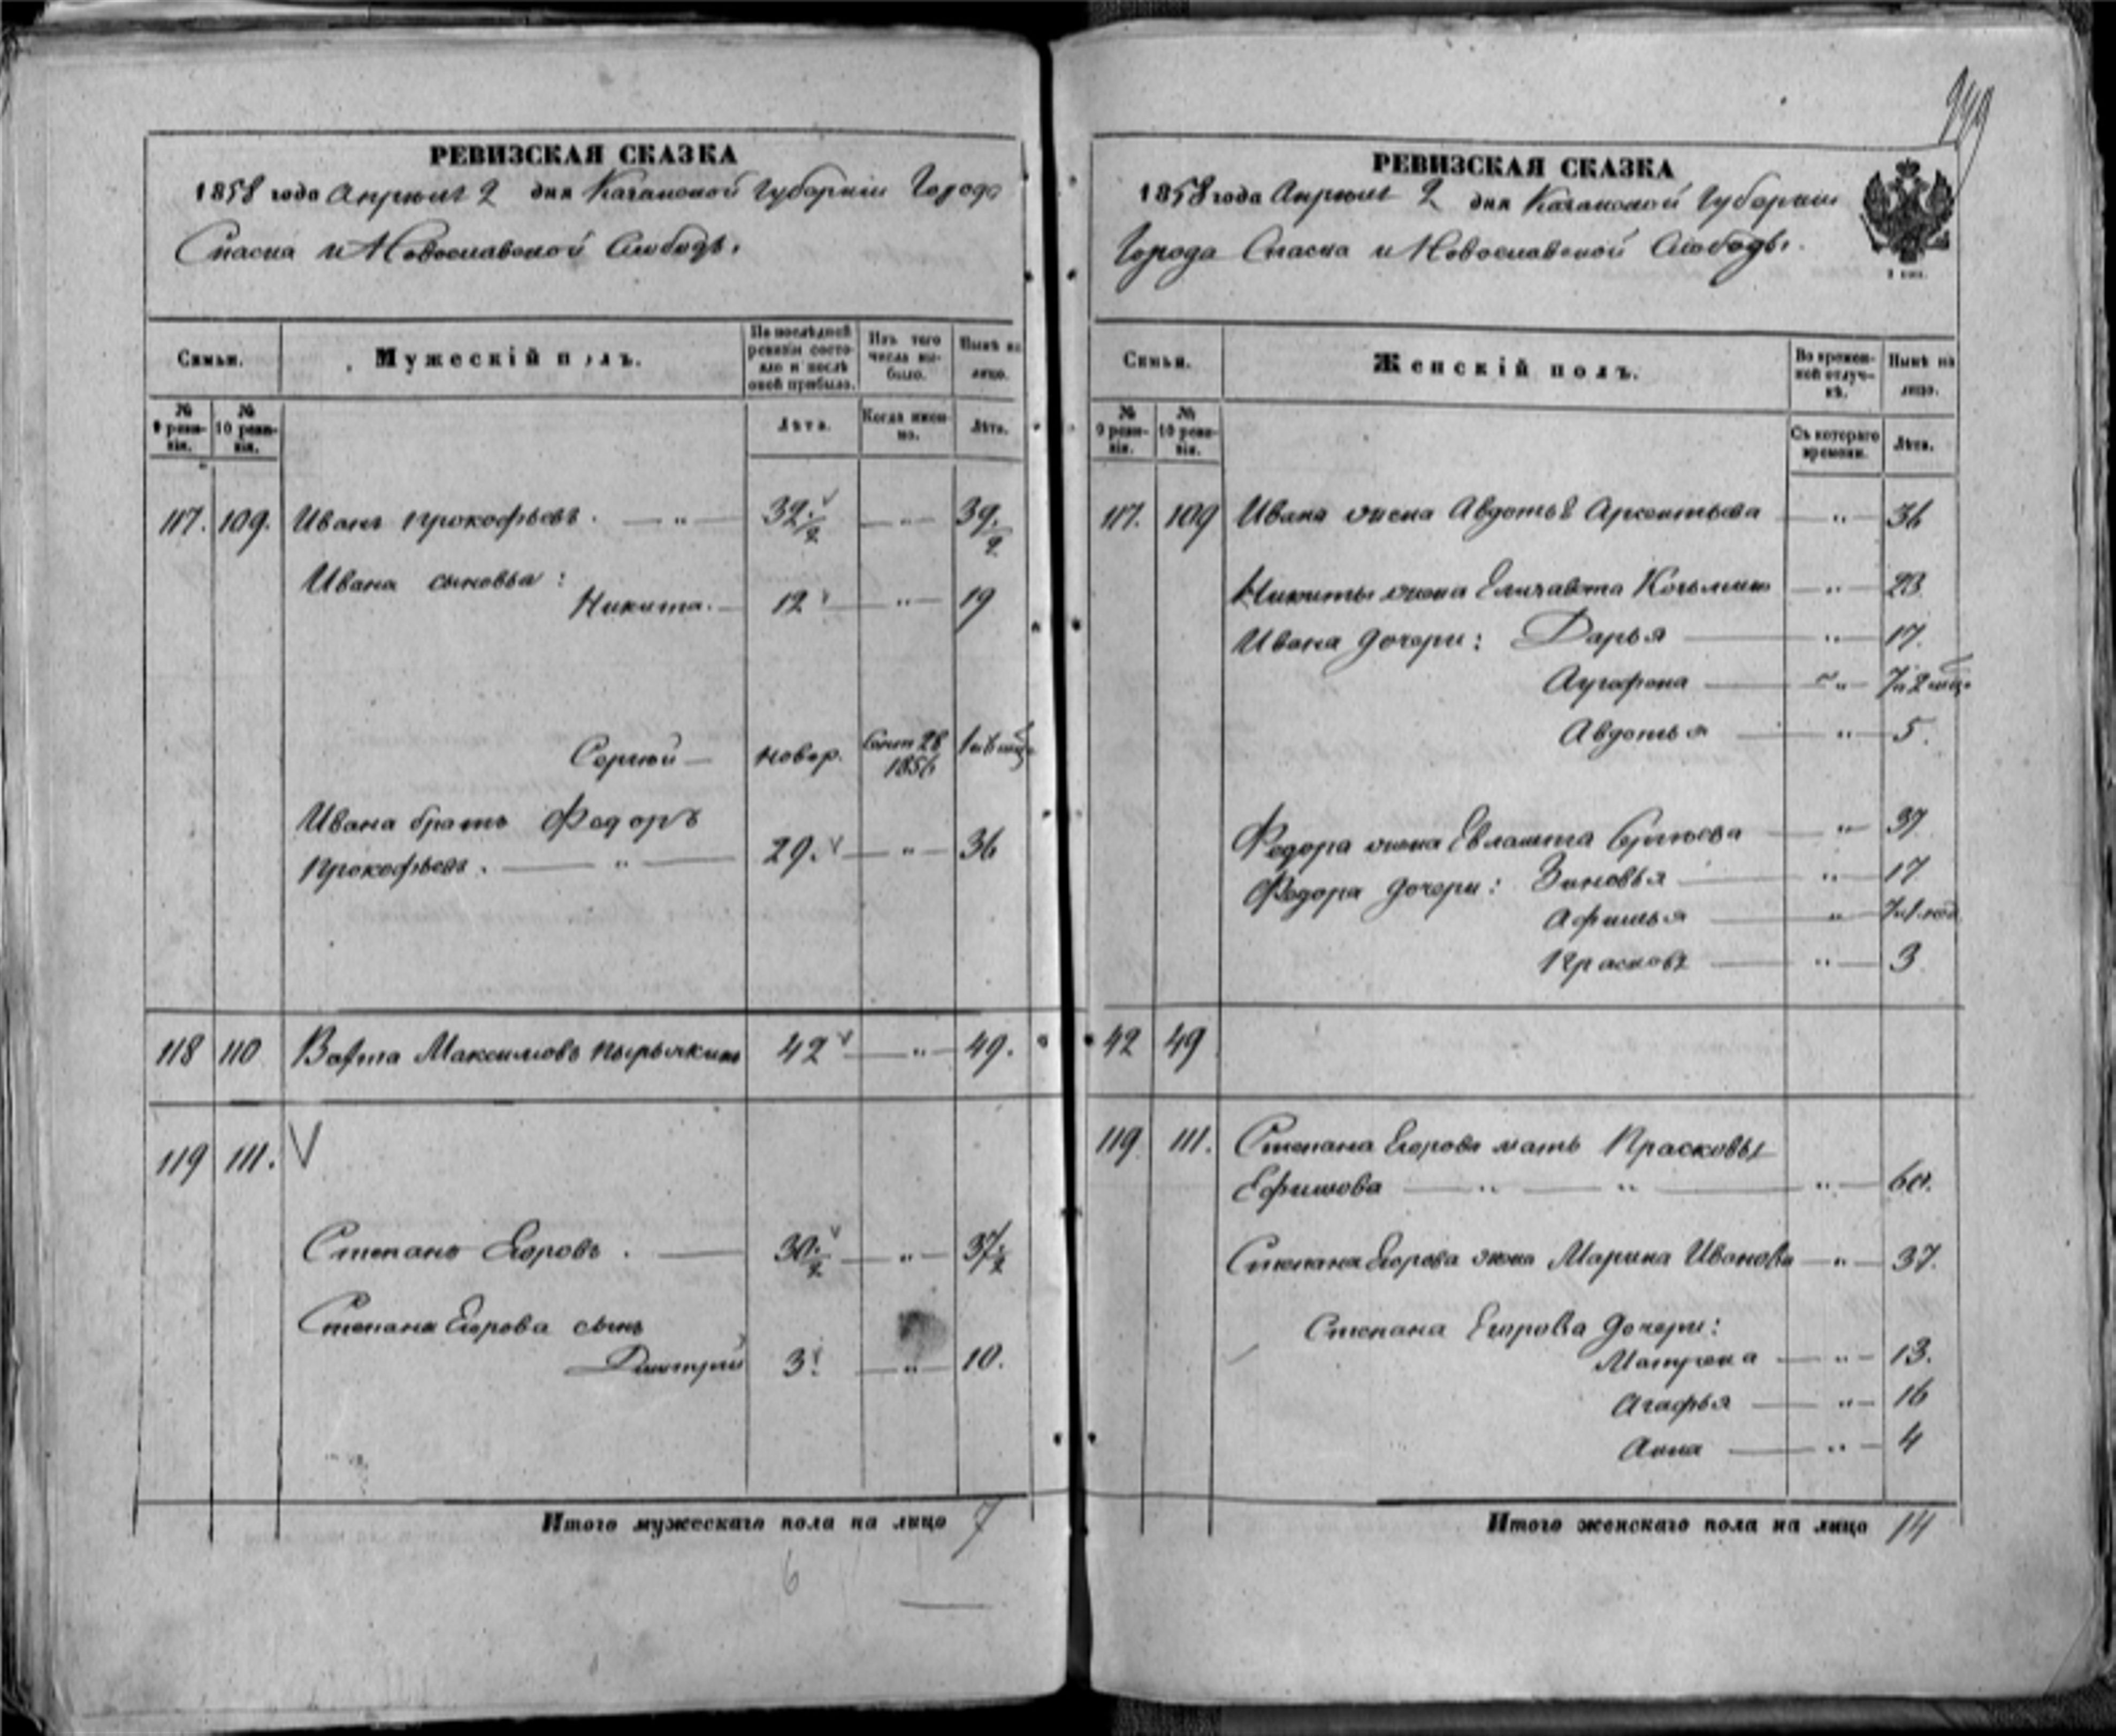 РЕВИЗСКАЯ СКАЗКА
1858 года Апреля 2 дня Казанской Губернии Города
Спаска и Новоспасской Слободы.
Семьи.
Мужескій полъ.
По послѣдней ревизіи состояло и послѣ оной прибыло.
Изъ того числа выбыло.
Нынѣ на лицо.
№ 9 ревизіи.
№ 10 ревизіи.
Лѣта.
Когда именно.
Лѣта.
117. 109. Иванъ Прокофьевъ. — " — 32./2 — " — 39./2
Ивана сыновья:
Никита. — 12 — " — 19
Сергей — новор. 28 1856
Ивана братъ Федоръ
Прокофьевъ. — " — 29. — " — 36
118 110 Максимовъ 42 — " — 49.
119 111. V
Степанъ Егоровъ. — 30./2 — " — 37./2
Степана Егорова сынъ
Дмитрий 3. — " — 10.
Итого мужескаго пола на лицо 7
6
РЕВИЗСКАЯ СКАЗКА
1858 года Апреля 2 дня Казанской Губернии
Города Спаска и Новоспасской Слободы.
Семьи.
Женскій полъ.
Во временной отлучкѣ.
Нынѣ на лицо.
№ 9 ревизіи.
№ 10 ревизіи.
Съ котораго времени.
Лѣта.
117. 109 Ивана жена Авдотья Арсентьева — " — 36
Никиты жена Елизавета Козьмина — " — 23
Ивана дочери: Дарья — " — 17.
Аграфена — " — 7 и 2 мѣс.
Авдотья — " — 5.
Федора жена Евлампия Сергеева — " — 37
Федора дочери: Зиновья — " — 17
Афимья — " —
Прасковья — " — 3
42 49
119 111. Степана Егорова мать Прасковья
Ефимова — " — " — " — 60.
Степана Егорова жена Марина Иванова — " — 37.
Степана Егорова дочери:
Матрена — " — 13.
Агафья — " — 16
Анна — " — 4
Итого женскаго пола на лицо 14